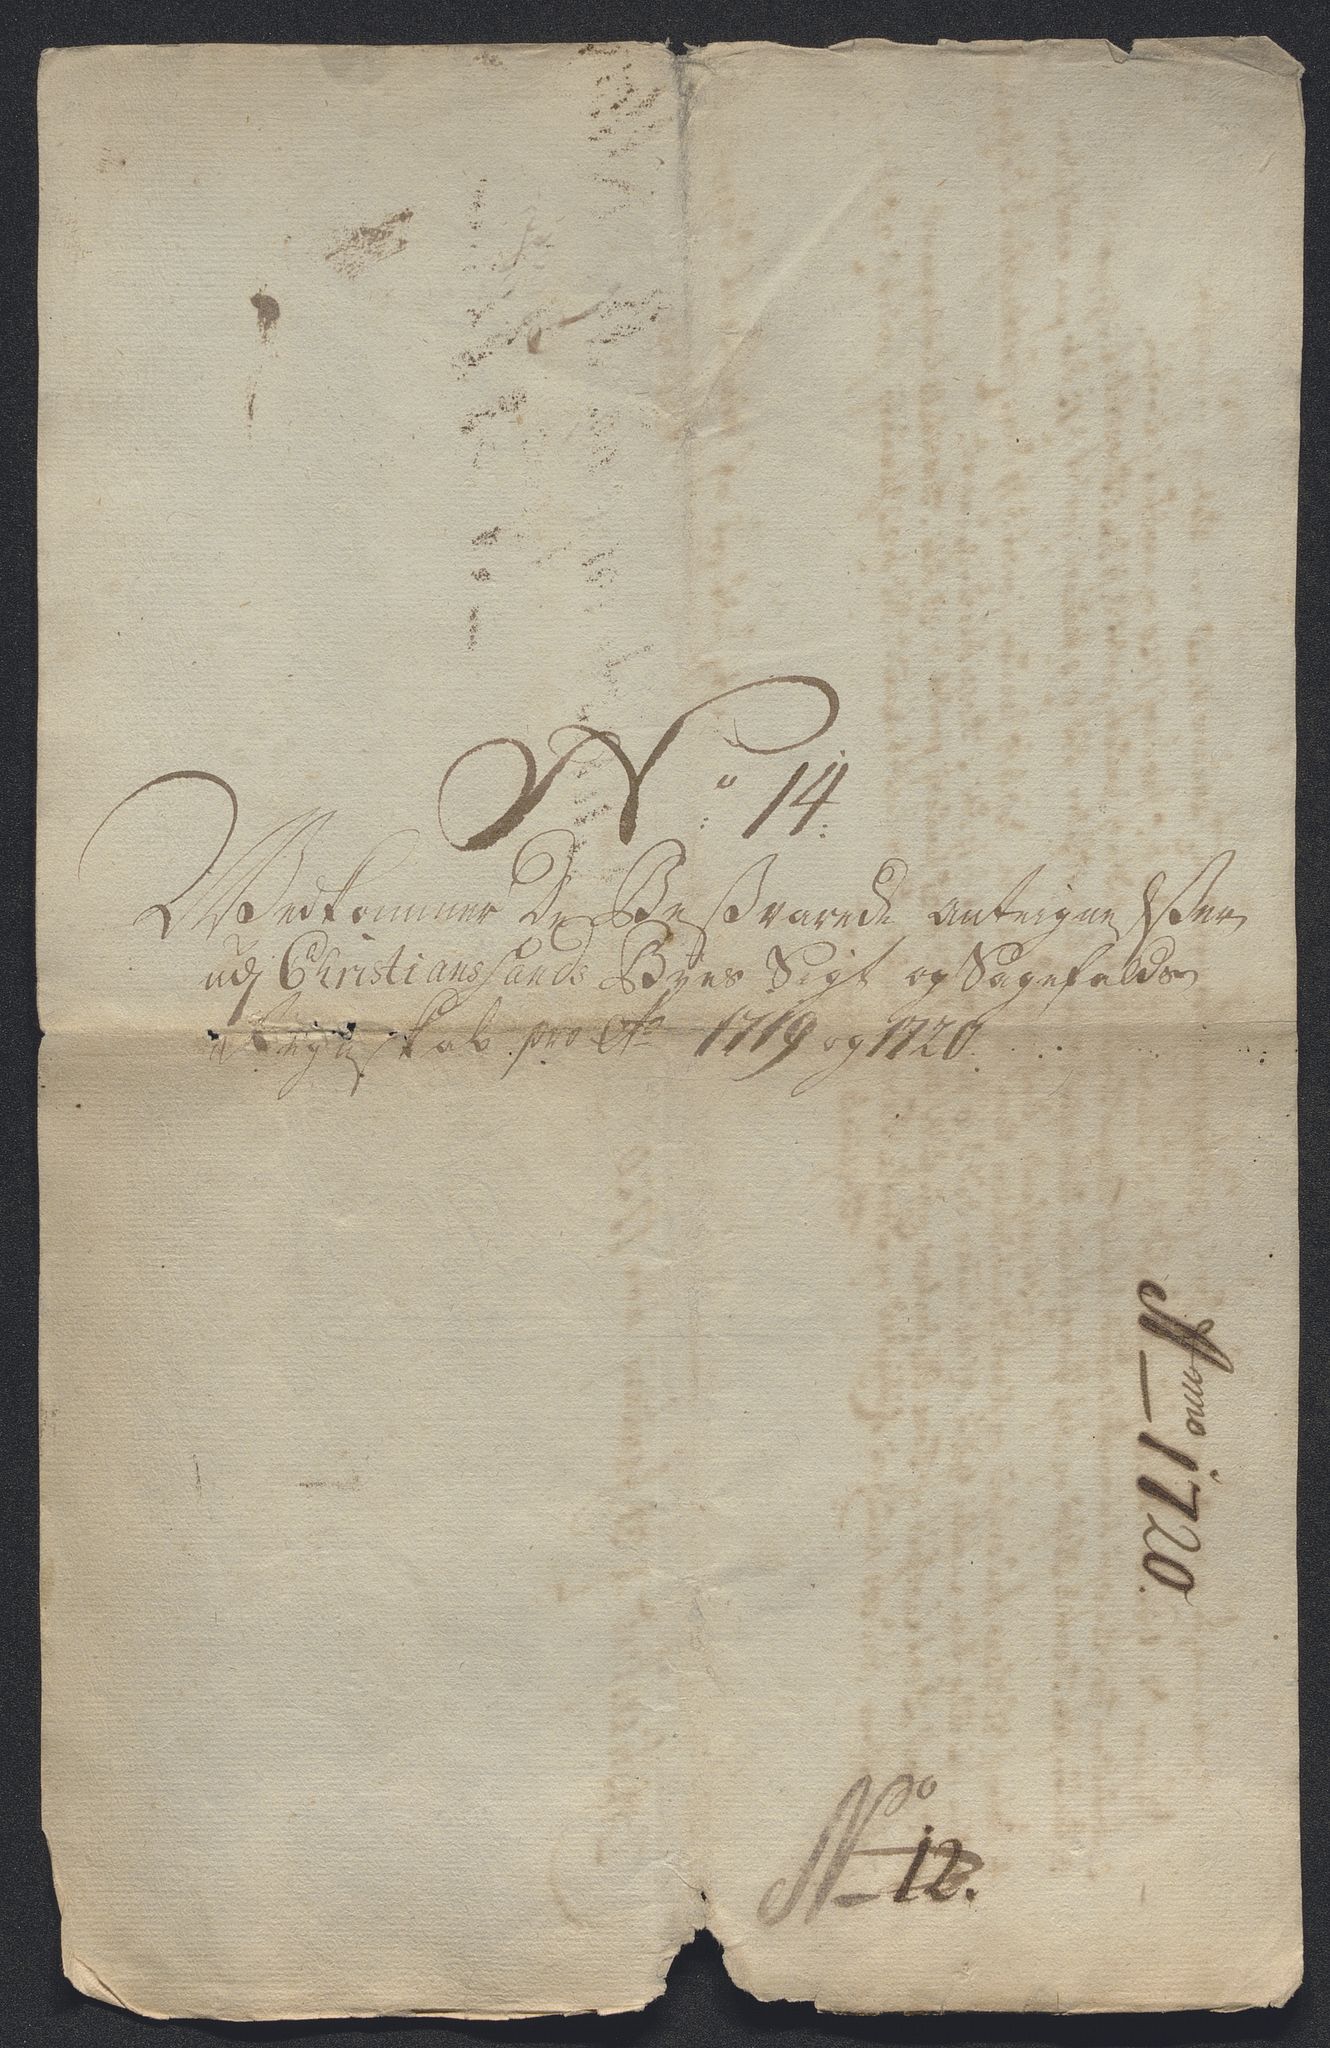 No 14.
Vedkommer De Beswarede anteignelser
udj Christianssands Byes Sigt og Sagefalds
Regnskab pro Ao 1719 og 1720.
Anno 1720.
No 12.